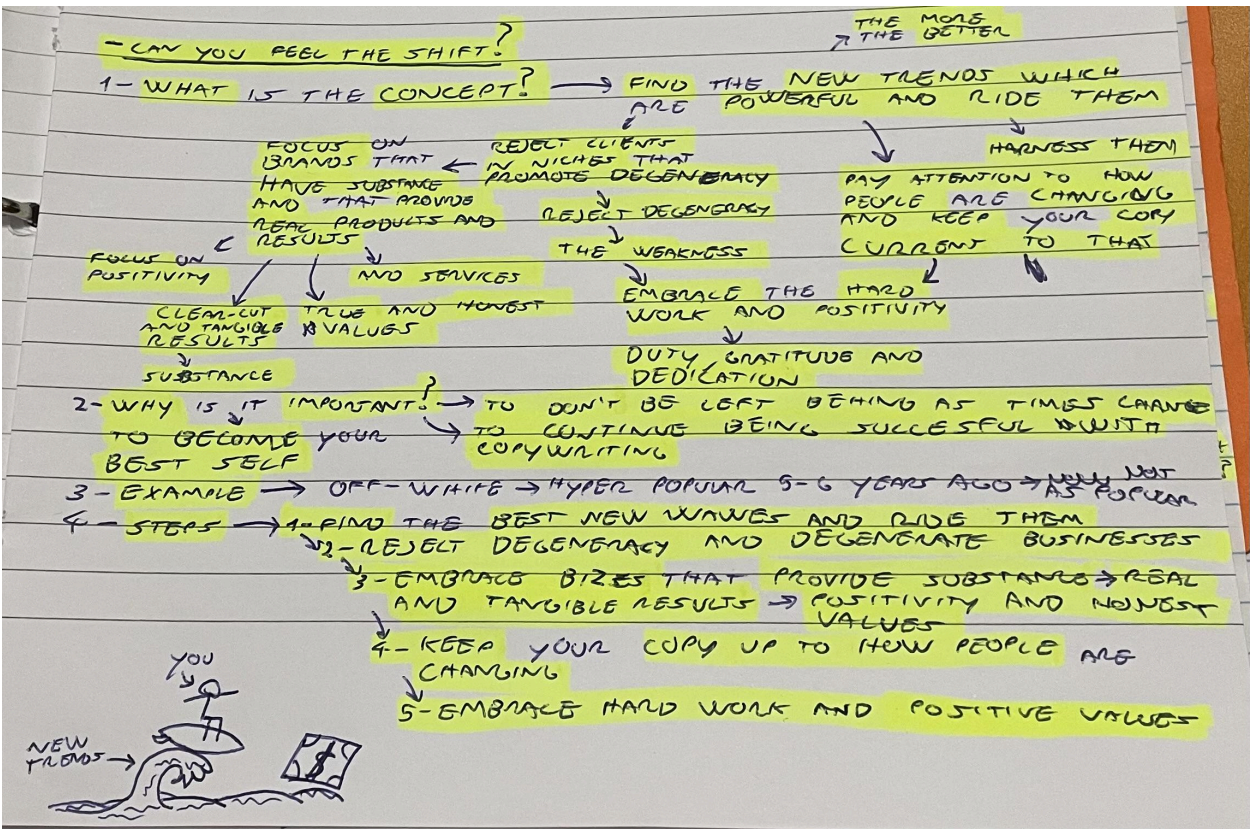 THE MORE
THE BETTER
- CAN YOU FEEL THE SHIFT?
1- WHAT IS THE CONCEPT? → FIND THE NEW TRENDS WHICH
ARE POWERFUL AND RIDE THEM
HARNESS THEM
PAY ATTENTION TO HOW
PEOPLE ARE CHANGING
AND KEEP YOUR COPY
CURRENT TO THAT
REJECT CLIENTS
IN NICHES THAT
PROMOTE DEGENERACY
REJECT DEGENERACY
THE WEAKNESS
EMBRACE THE HARD
WORK AND POSITIVITY
DUTY, GRATITUDE AND
DEDICATION
FOCUS ON
BRANDS THAT
HAVE SUBSTANCE
AND THAT PROVIDE
REAL PRODUCTS AND
RESULTS
FOCUS ON
POSITIVITY
AND SERVICES
CLEAR-CUT
AND TANGIBLE
RESULTS
SUBSTANCE
TRUE AND HONEST
VALUES
2- WHY IS IT IMPORTANT? → TO DON'T BE LEFT BEHING AS TIMES CHANGE
TO BECOME YOUR
BEST SELF
TO CONTINUE BEING SUCCESFUL WITH
COPYWRITING
3- EXAMPLE → OFF-WHITE → HYPER POPULAR 5-6 YEARS AGO → NOW NOT
AS POPULAR
4- STEPS → 1- FIND THE BEST NEW WAWES AND RIDE THEM
2- REJECT DEGENERACY AND DEGENERATE BUSINESSES
3- EMBRACE BIZES THAT PROVIDE SUBSTANCE → REAL
AND TANGIBLE RESULTS → POSITIVITY AND HONEST
VALUES
4- KEEP YOUR COPY UP TO HOW PEOPLE ARE
CHANGING
5- EMBRACE HARD WORK AND POSITIVE VALUES
YOU
NEW
TRENDS →
$